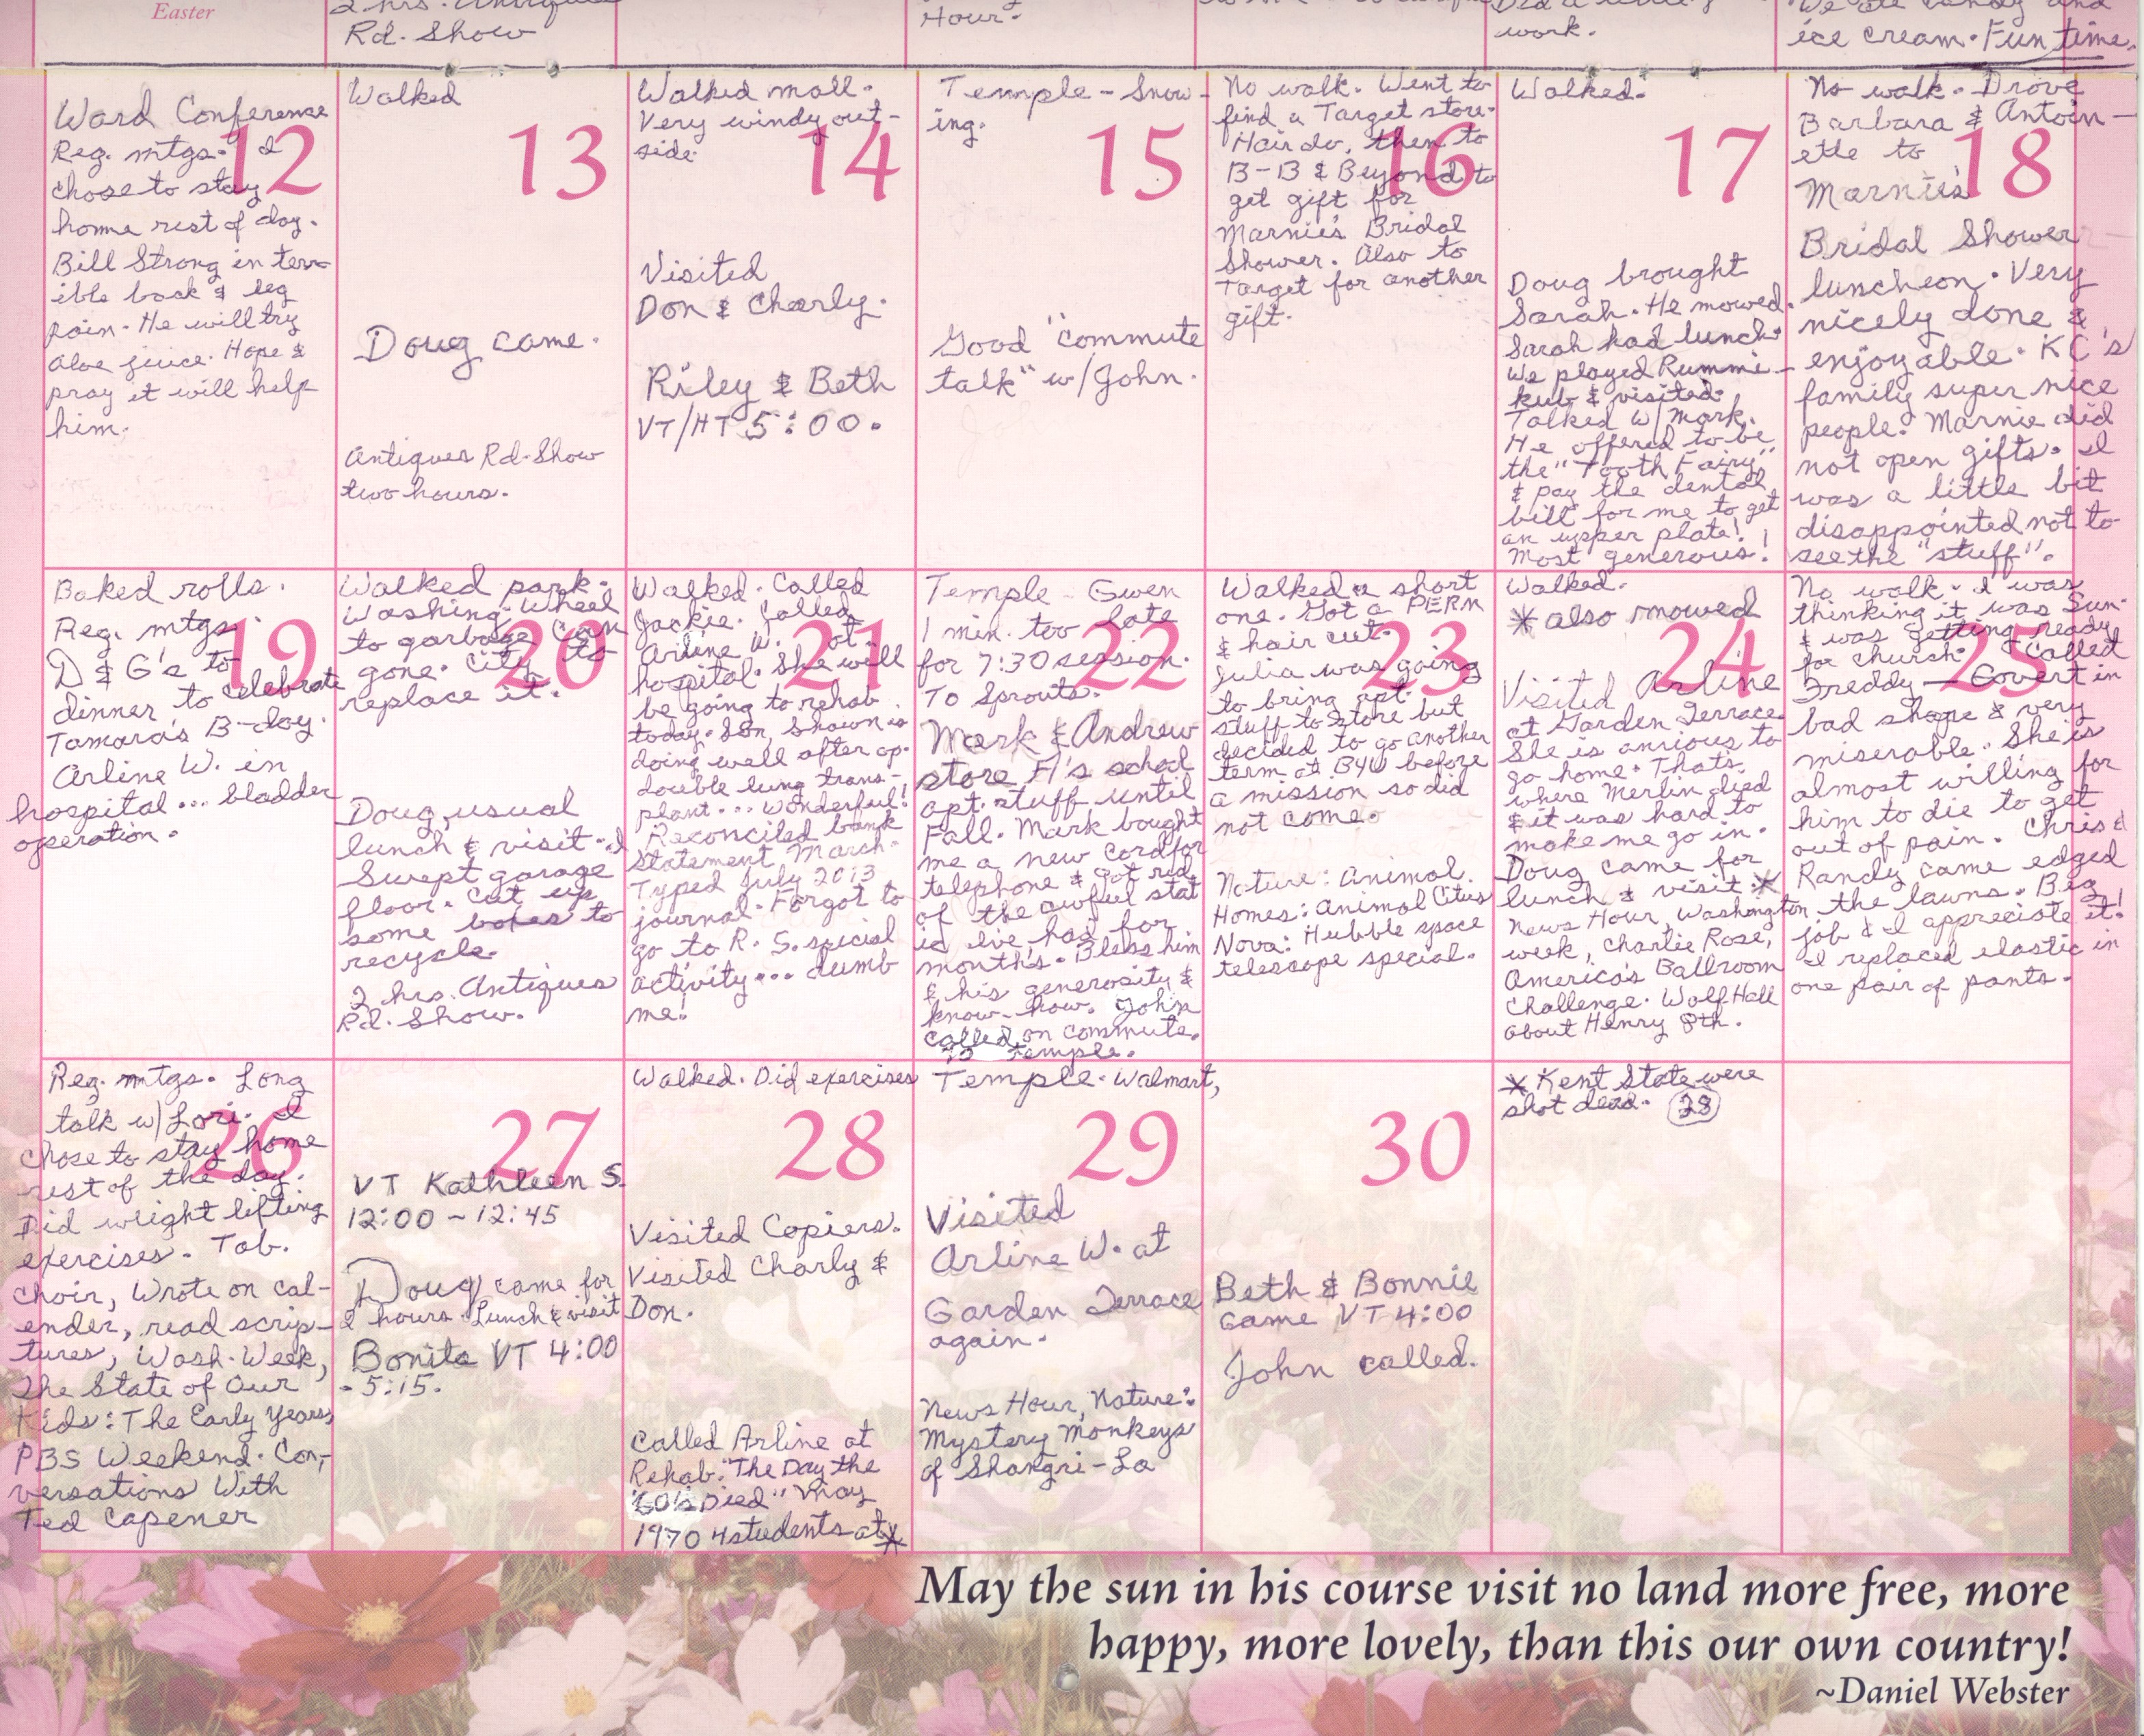 Easter
Rd. Show
Hour.
work.
ice cream. Fun time.
Ward Conference
12
Reg. mtgs. I
chose to stay
home rest of day.
Bill Strong in terr-
ible back & leg
pain. He will try
aloe juice. Hope &
pray it will help
him.
Walked
13
Doug came.
Antiques Rd. Show
two hours.
Walked mall.
Very windy out-
side.
14
Visited
Don & Charly.
Riley & Beth
VT/HT 5:00.
Temple - Snow-
ing.
15
Good "commute
talk" w/John.
No walk. Went to
find a Target store.
Hair do, then to
16
B-B & Beyond to
get gift for
Marnie's Bridal
Shower. Also to
Target for another
gift.
Walked.
17
Doug brought
Sarah. He mowed.
Sarah had lunch.
We played Rummi-
kub & visited.
Talked w/Mark.
He offered to be
the "Tooth Fairy"
& pay the dental
bill for me to get
an upper plate!
Most generous!
No walk. Drove
Barbara & Antoin-
ette to
18
Marnie's
Bridal Shower
luncheon. Very
nicely done &
enjoyable. KC's
family super nice
people. Marnie did
not open gifts. I
was a little bit
disappointed not to
see the "stuff".
Baked rolls.
Reg. mtgs.
19
D & G's to
dinner to celebrate
Tamara's B-day.
Arline W. in
hospital... bladder
operation.
Walked park.
Washing. Wheel
to garbage can
20
gone. City to
replace it.
Doug, usual
lunch & visit. I
Swept garage
floor. Cut up
some boxes to
recycle.
2 hrs. Antiques
Rd. Show.
Walked. Called
Jackie. Called
Arline W. at
21
hospital. She will
be going to rehab
today. Son, Shawn is
doing well after op.
double lung trans-
plant... wonderful!
Reconciled bank
statement March.
Typed July 2013
journal. Forgot to
go to R. S. special
activity... dumb
me!
Temple - Gwen
1 min. too late
for 7:30 session.
22
To Sprouts.
Mark & Andrew
store A's school
apt. stuff until
Fall. Mark bought
me a new cord for
telephone & got rid
of the awful stat
ic I've had for
months. Bless him
& his generosity &
know-how. John
called on commute.
to Temple.
Walked a short
one. Got a PERM
& hair cut.
23
Julia was going
to bring apt.
stuff to store but
decided to go another
term at BYU before
a mission so did
not come.
Nature: Animal
Homes: Animal Cities
Nova: Hubble space
telescope special.
Walked.
* also mowed
24
Visited Arline
at Garden Terrace
She is anxious to
go home. That's
where Merlin died
& it was hard to
make me go in.
Doug came for
lunch & visit.*
News Hour, Washington
week, Charlie Rose,
America's Ballroom
Challenge. Wolf Hall
about Henry 8th.
No walk. I was
thinking it was Sun.
& was getting ready
for church. Called
25
Freddy — Covert in
bad shape & very
miserable. She is
almost willing for
him to die to get
out of pain. Chris &
Randy came edged
the lawns. Big
job & I appreciate it!
I replaced elastic in
one pair of pants.
Reg. mtgs. Long
talk w/Lori. I
26
chose to stay home
rest of the day.
Did weight lifting
exercises. Tab.
choir, Wrote on cal-
ender, read scrip-
tures, Wash. Week,
The State of Our
Kids: The Early Years
PBS Weekend. Con-
versations With
Ted Capener
27
VT Kathleen S.
12:00 - 12:45
Doug came for
2 hours. Lunch & visit
Bonita VT 4:00
- 5:15.
Walked. Did exercises
28
Visited Copiers.
Visited Charly &
Don.
Called Arline at
Rehab. "The Day the
'60's Died" May
1970 4 students at *
Temple. Walmart,
29
Visited
Arline W. at
Garden Terrace
again.
News Hour, Nature:
Mystery Monkeys
of Shangri-La
30
Beth & Bonnie
came VT 4:00
John called.
* Kent State were
shot dead. 28
May the sun in his course visit no land more free, more
happy, more lovely, than this our own country!
~Daniel Webster